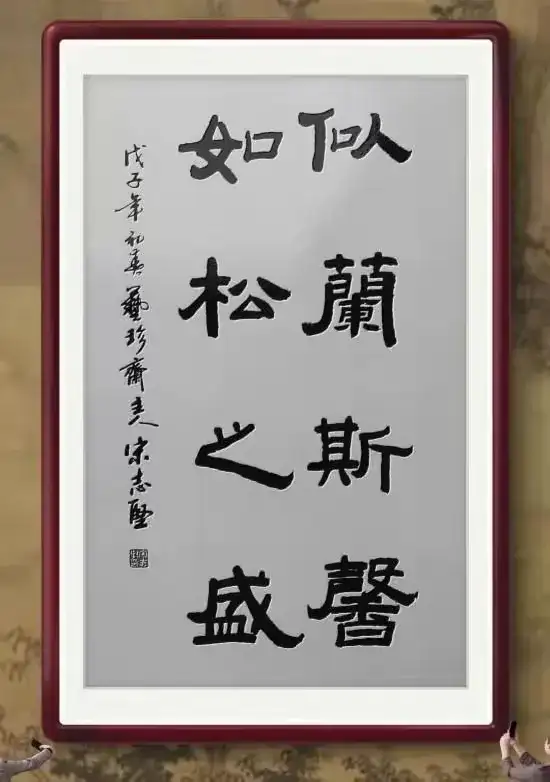 似蘭斯馨
如松之盛
戊子年初春藝珍齋主人宋志堅